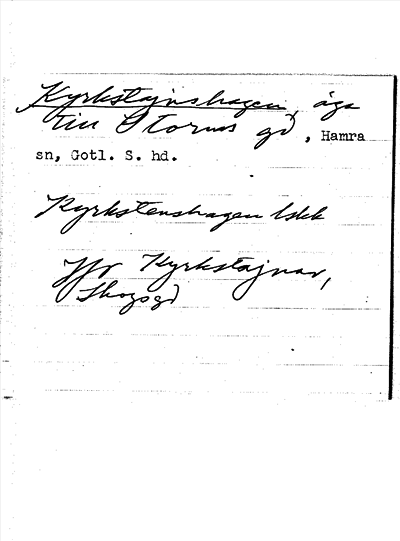 Kyrkstajnshagen, äga
till Storms gd, Hamra
sn, Gotl. S. hd.
Kyrkstenshagen lskk
Jfr Kyrkstajnar,
Skogsgd